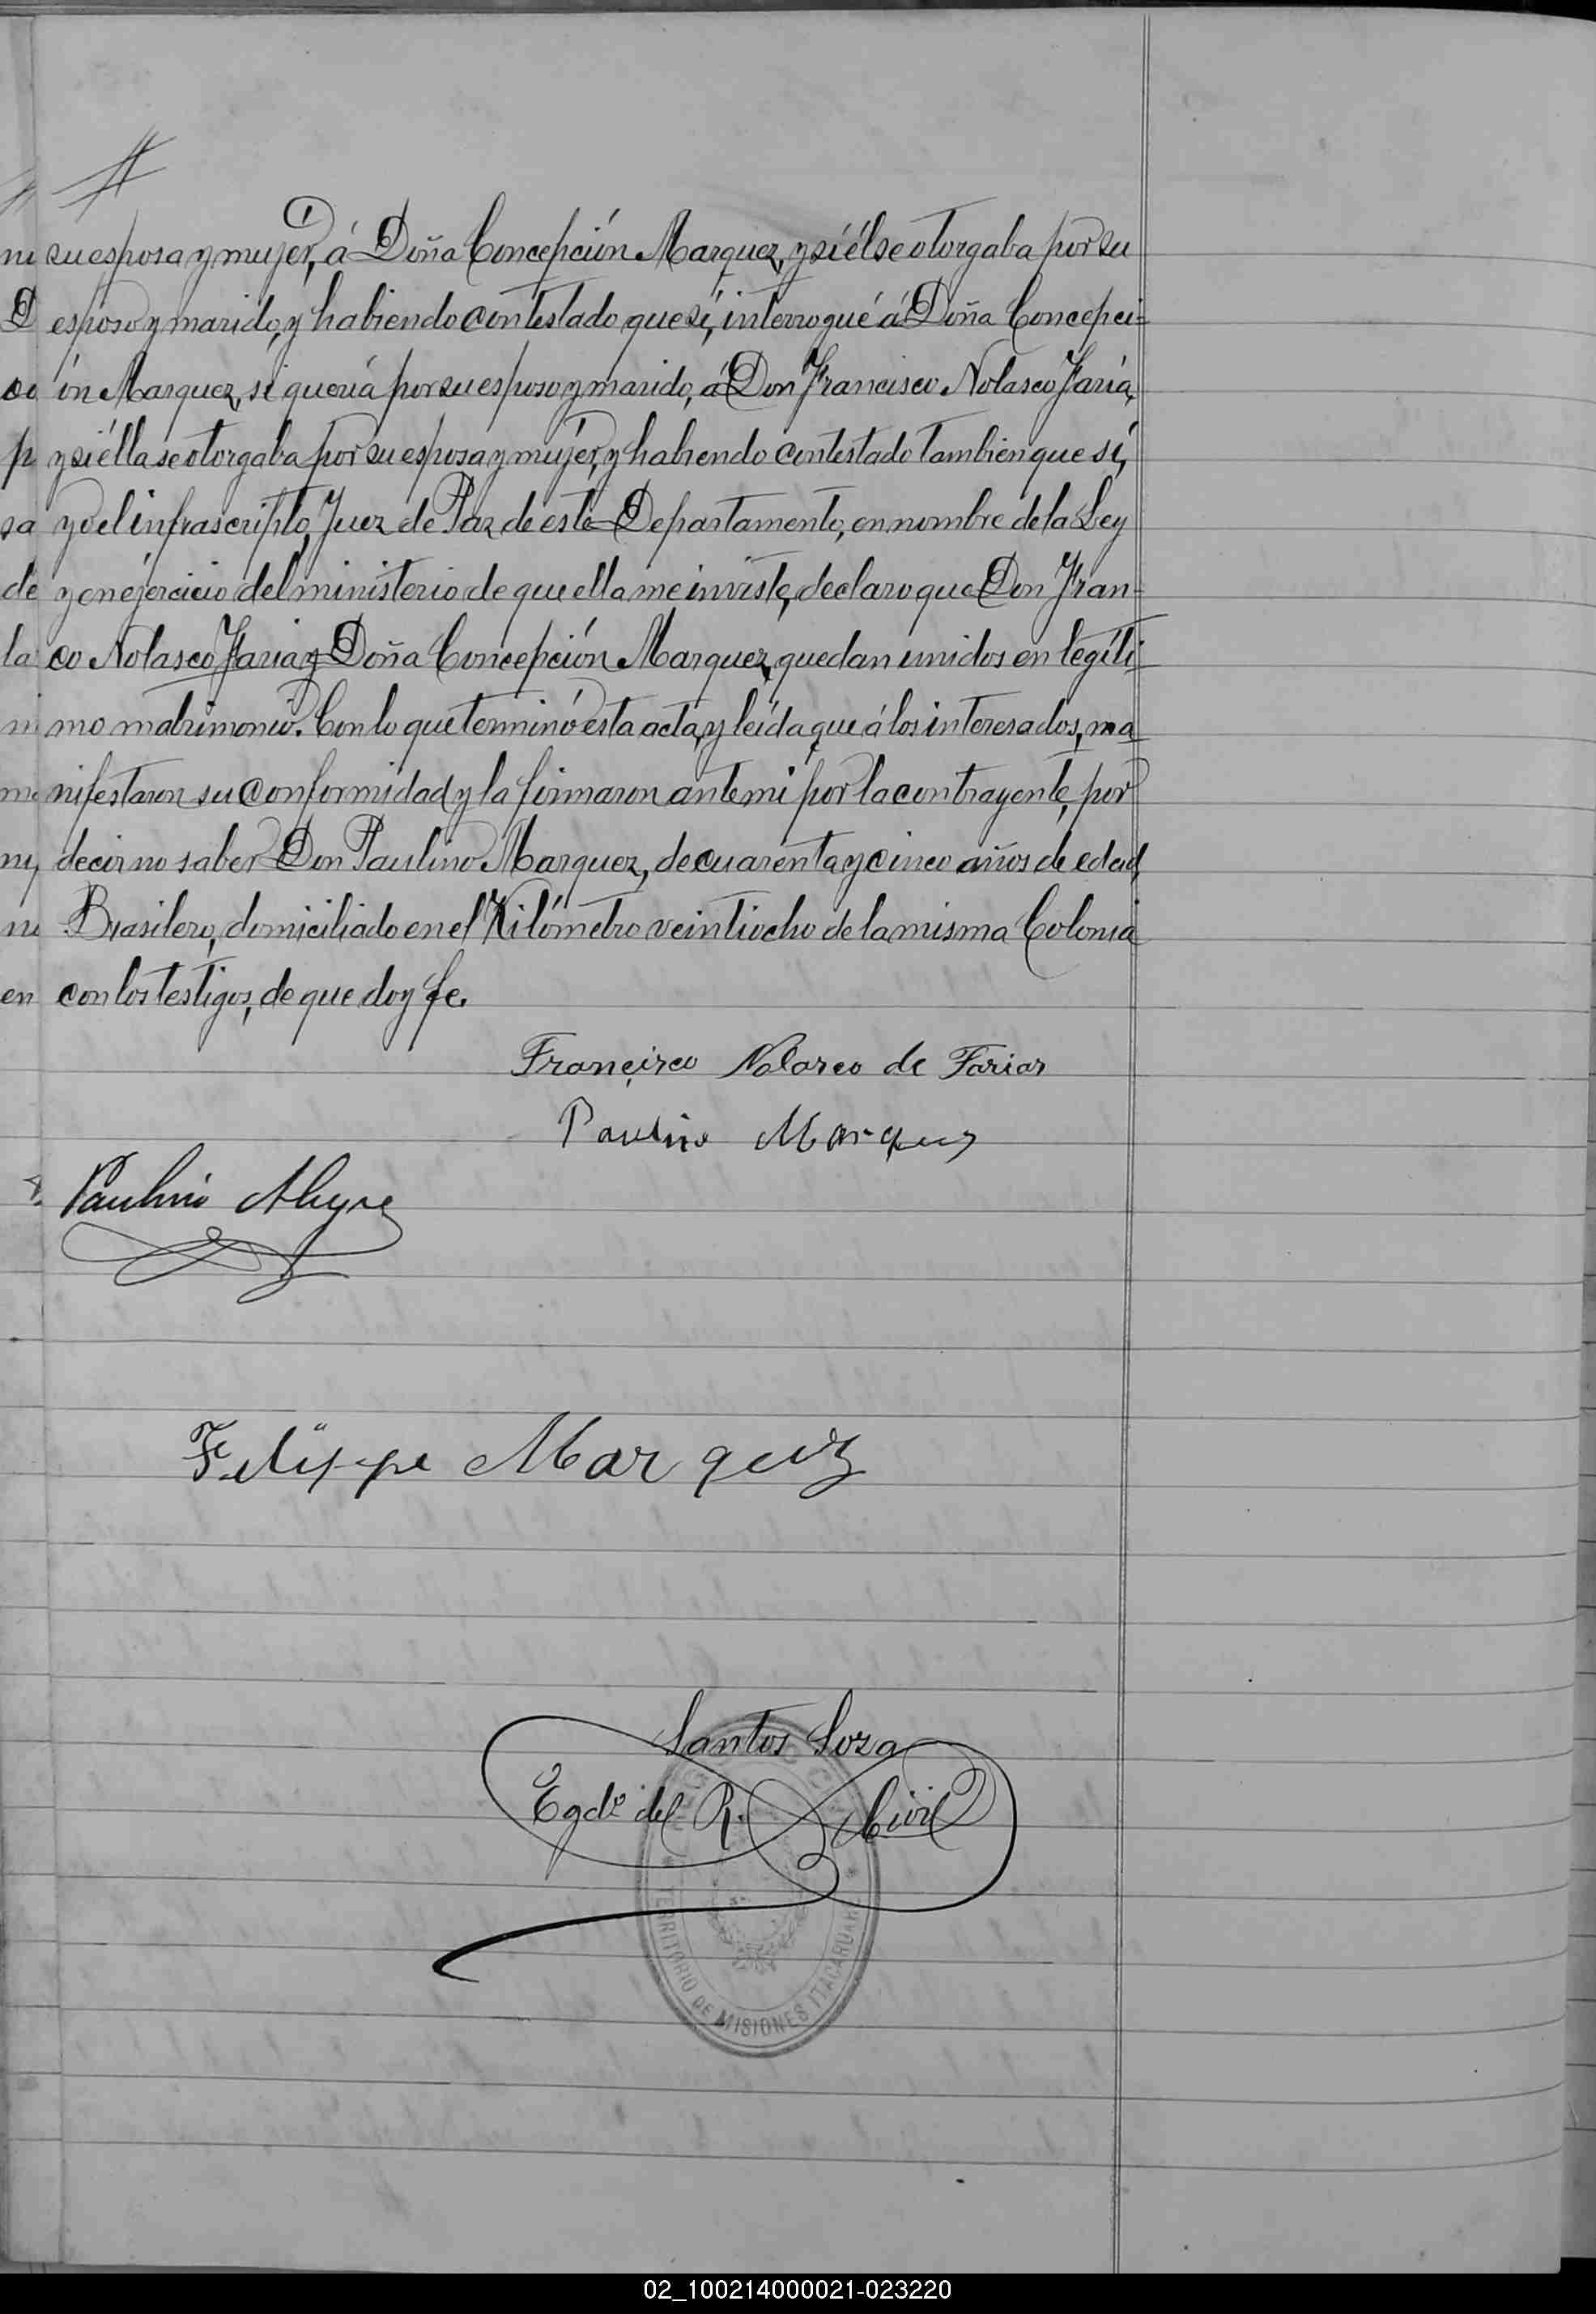 su esposa y mujer, á Doña Concepción Marquez, y si él se otorgaba por su
esposo y marido, y habiendo contestado que sí, interrogué á Doña Concepci=
ón Marquez, si quería por su esposo y marido, á Don Francisco Nolasco Faría,
y si élla se otorgaba por su esposa y mujér, y habiendo contestado tambien que sí,
yo el infrascripto, Juez de Paz de este Departamento, en nombre de la Ley
y en ejercicio del ministerio de que ella me inviste, declaro que Don Fran-
co Nolasco Faria y Doña Concepción Marquez, quedan unidos en legíti-
mo matrimonio. Con lo que terminó esta acta, y leída que á los interesados, ma
nifestaron su conformidad y la firmaron ante mi por la contrayente, por
decir no saber Don Paulino Marquez, de cuarenta y cinco años de edad,
Brasilero, domiciliado en el Kilómetro veintiocho de la misma Colonia
con los testigos, de que doy fe.
Françisco Nolasco de Farias
Paulino Marques
Paulino Alegre
Felippe Marquez
Santos Soza
Egdo del R. Civil
TERRITORIO DE MISIONES ITACARUARE
02_100214000021-023220